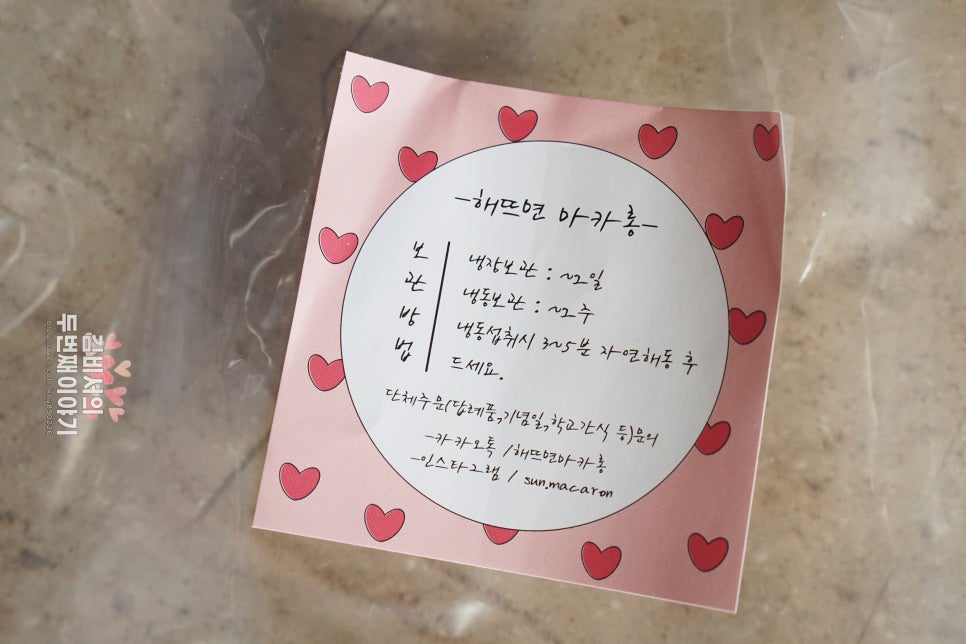 -해뜨면 마카롱-
보관방법
냉장보관 : ~2일
냉동보관 : ~2주
냉동섭취시 3~5분 자연해동 후
드세요.
단체주문(답례품,기념일,학교간식 등)문의
-카카오톡 /해뜨면마카롱
-인스타그램 / sun.macaron
김비서의
두번째이야기